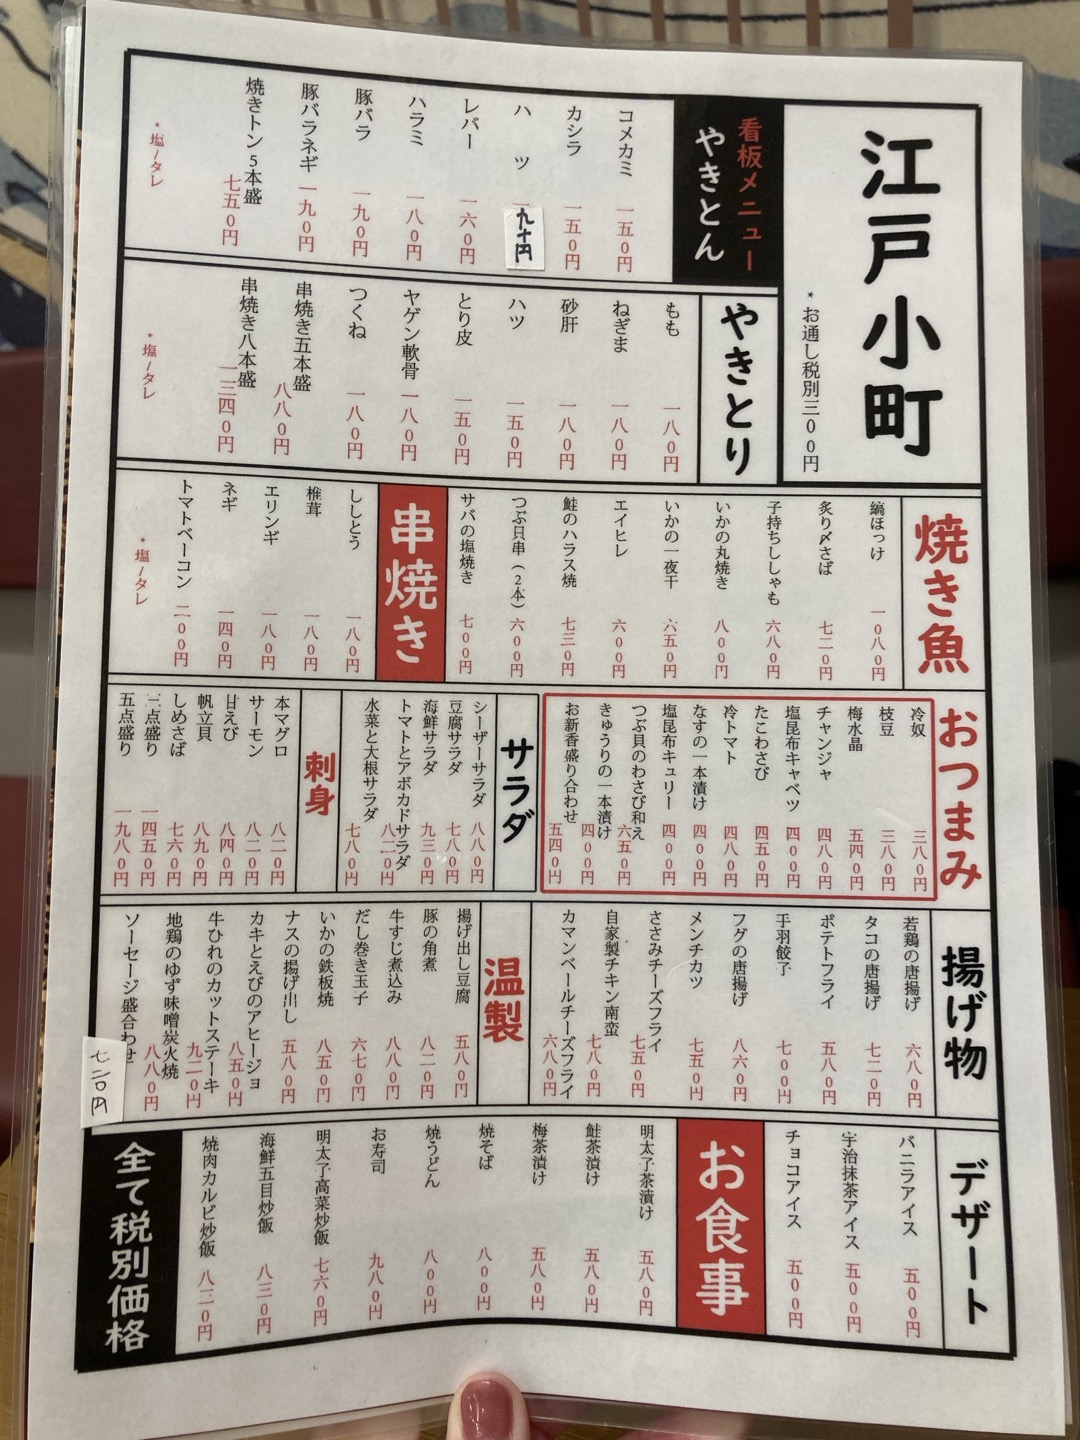 江戸小町
*お通し税別三00円
看板メニュー
やきとん
コメカミ 一五0円
カシラ 一五0円
ハツ 九十円
レバー 一六0円
ハラミ 一八0円
豚バラ 一九0円
豚バラネギ 一九0円
焼きトン5本盛 七五0円
*塩/タレ
やきとり
もも 一八0円
ねぎま 一八0円
砂肝 一八0円
ハツ 一五0円
とり皮 一五0円
ヤゲン軟骨 一八0円
つくね 一八0円
串焼き五本盛 八八0円
串焼き八本盛 一三四0円
*塩/タレ
焼き魚
縞ほっけ 一0八0円
炙り〆さば 七二0円
子持ちししゃも 六八0円
いかの丸焼き 八00円
いかの一夜干 六五0円
エイヒレ 六00円
鮭のハラス焼 七三0円
つぶ貝串(2本) 六00円
サバの塩焼き 七00円
串焼き
ししとう 一八0円
椎茸 一八0円
エリンギ 一八0円
ネギ 一四0円
トマトベーコン 二00円
*塩/タレ
おつまみ
冷奴 三八0円
枝豆 三八0円
梅水晶 五四0円
チャンジャ 四八0円
塩昆布キャベツ 四00円
たこわさび 四五0円
冷トマト 四八0円
なすの一本漬け 四00円
塩昆布キュリー 四00円
つぶ貝のわさび和え 六五0円
きゅうりの一本漬け 四00円
お新香盛り合わせ 五四0円
サラダ
シーザーサラダ 八八0円
豆腐サラダ 七八0円
海鮮サラダ 九三0円
トマトとアボカドサラダ 八二0円
水菜と大根サラダ 七八0円
刺身
本マグロ 八二0円
サーモン 八二0円
甘えび 八四0円
帆立貝 八九0円
しめさば 七六0円
三点盛り 一四五0円
五点盛り 一九八0円
揚げ物
若鶏の唐揚げ 六八0円
タコの唐揚げ 七二0円
ポテトフライ 五八0円
手羽餃子 七00円
フグの唐揚げ 八六0円
メンチカツ 七五0円
ささみチーズフライ 七五0円
自家製チキン南蛮 七八0円
カマンベールチーズフライ 六八0円
温製
揚げ出し豆腐 五八0円
豚の角煮 八二0円
牛すじ煮込み 八八0円
だし巻き玉子 六七0円
いかの鉄板焼 八五0円
ナスの揚げ出し 五八0円
カキとえびのアヒージョ 八五0円
牛ひれのカットステーキ 九二0円
地鶏のゆず味噌炭火焼 八八0円
ソーセージ盛合わせ 七二0円
デザート
バニラアイス 五00円
宇治抹茶アイス 五00円
チョコアイス 五00円
お食事
明太子茶漬け 五八0円
鮭茶漬け 五八0円
梅茶漬け 五八0円
焼そば 八00円
焼うどん 八00円
お寿司 九八0円
明太子高菜炒飯 七六0円
海鮮五目炒飯 八三0円
焼肉カルビ炒飯 八三0円
全て税別価格